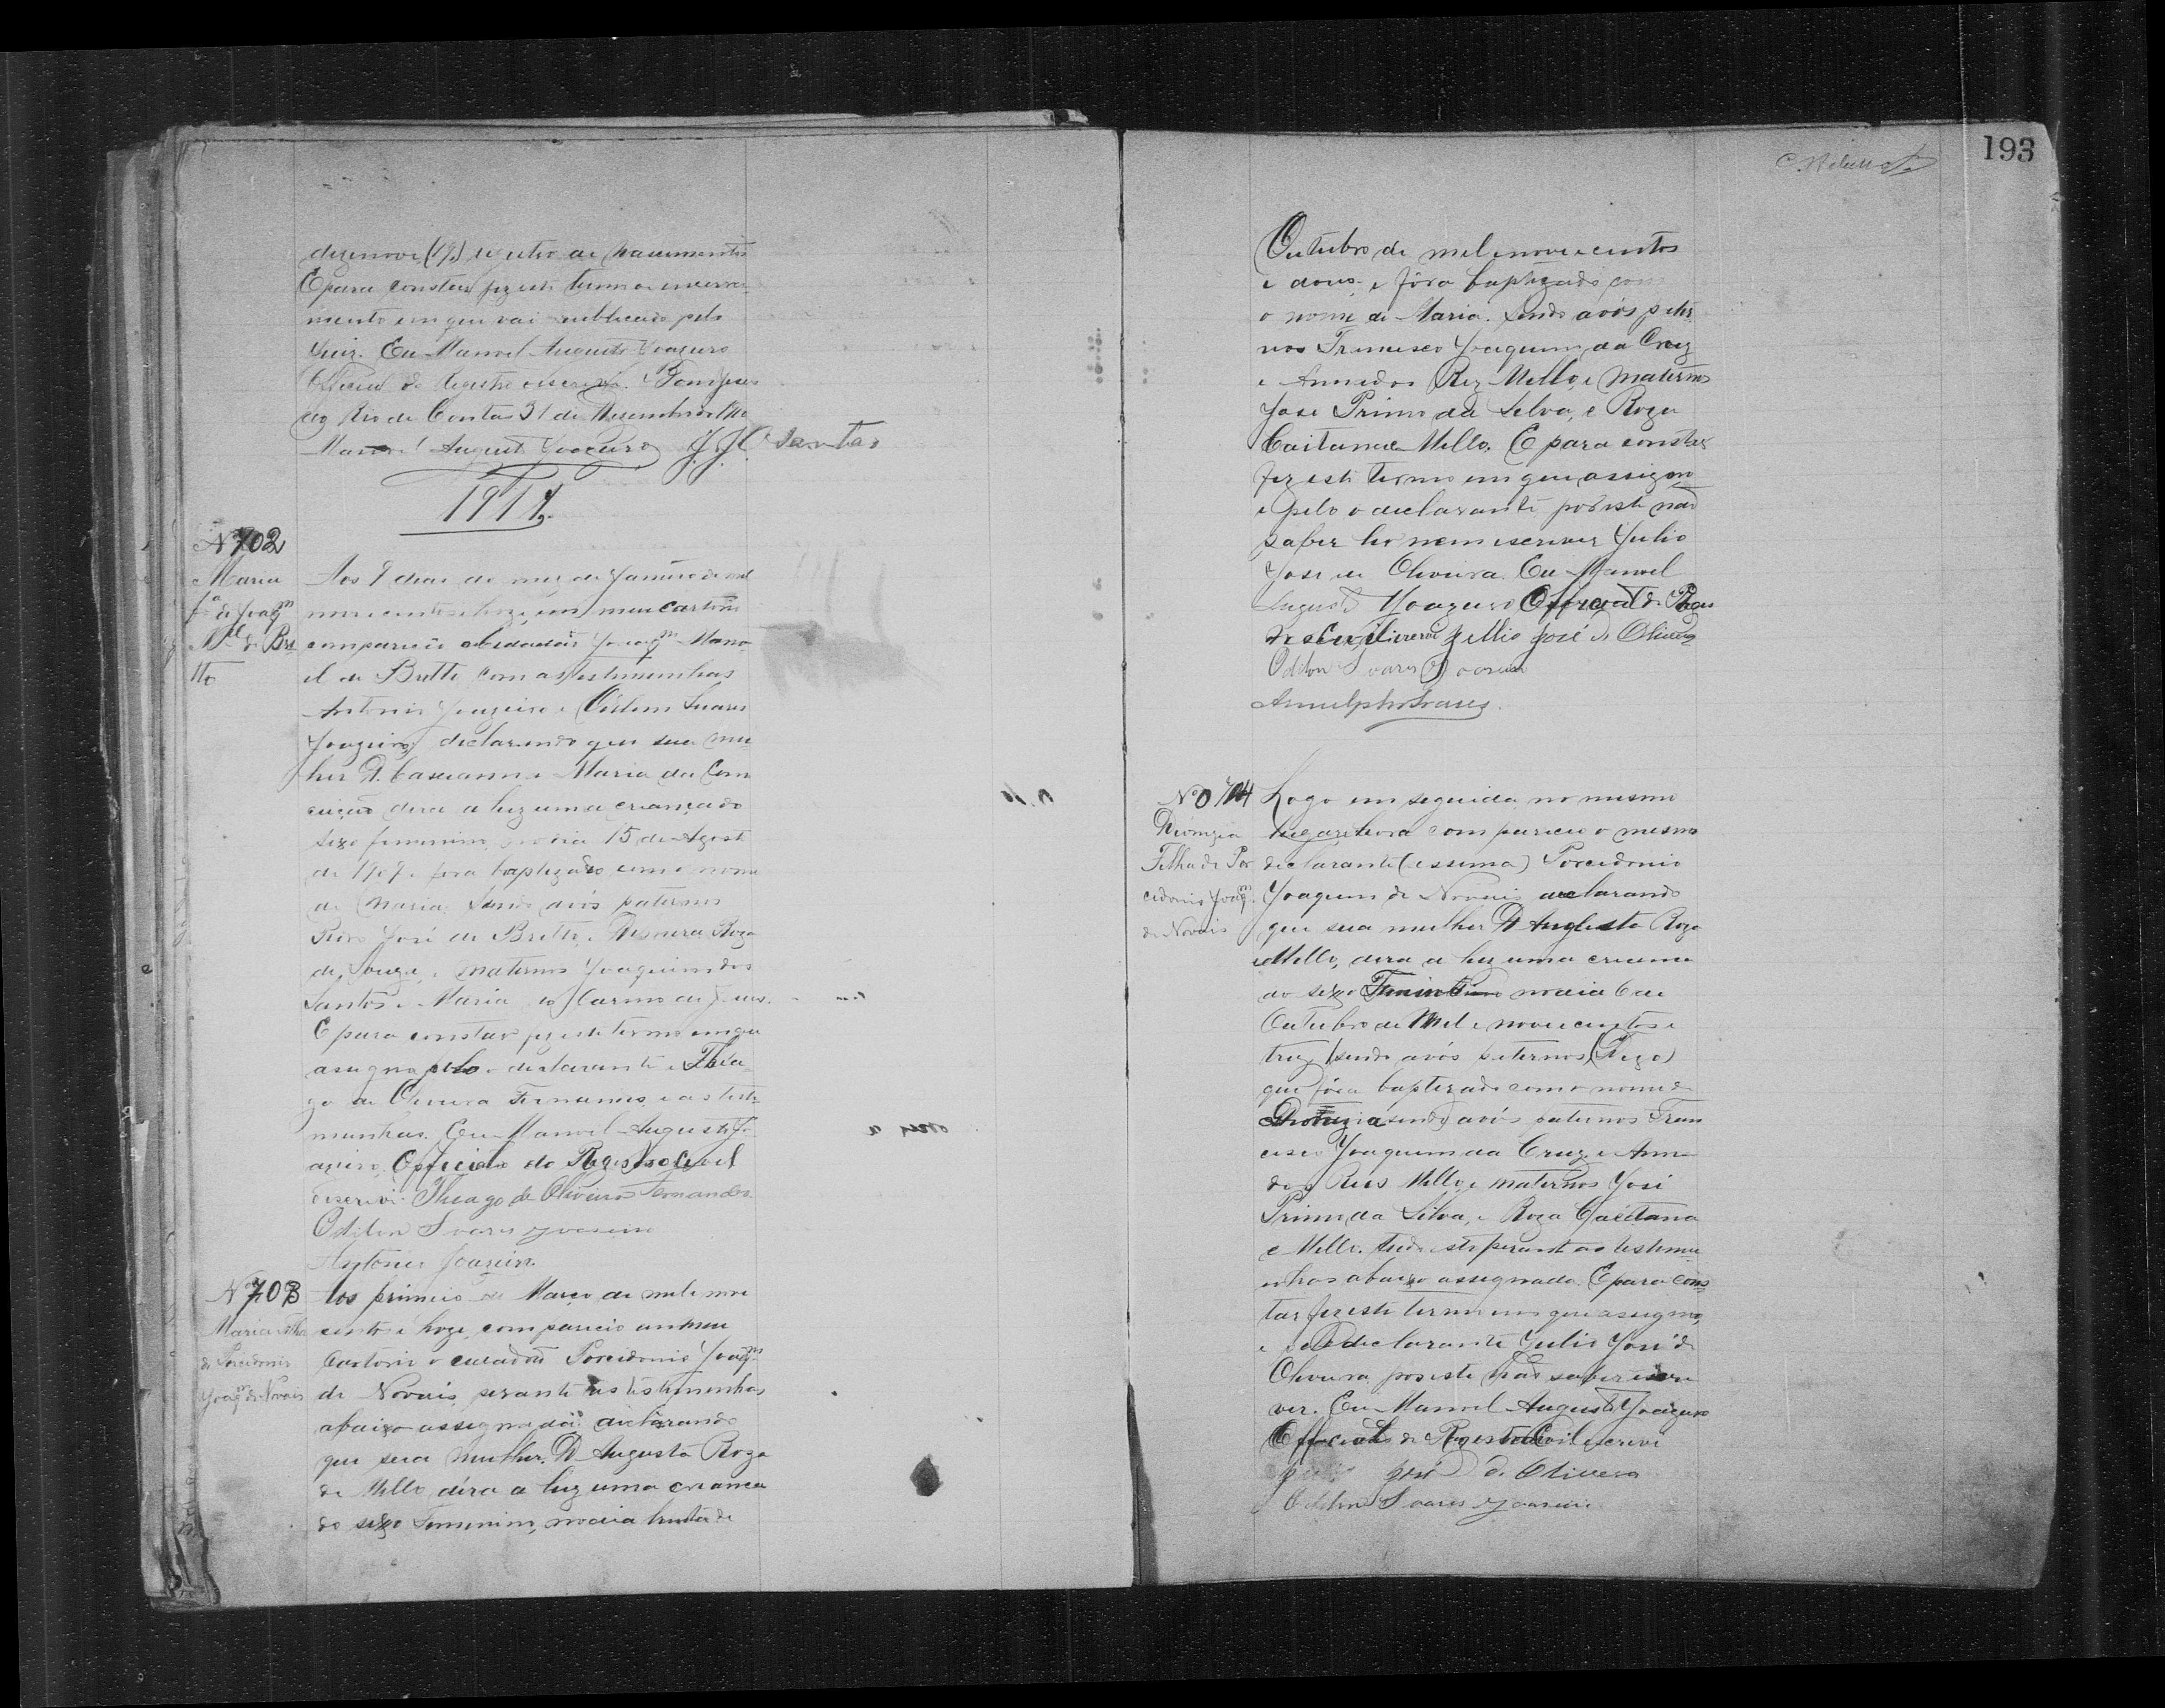 dezenove (19) registro de nascimentos
E para constar fiz este termo de encerra-
mento em que vai rubricado pelo
Juiz. Eu Manoel Augusto Joazeiro
Official do Registro escrevi. Bom Jesus
do Rio de Contas 31 de Dezembro de
Manoel Augusto Joazeiro J. J. C. Santos
1914
Nº 702
Maria
fª de Joaqm
Mel de Bri
tto
Aos 9 dias do mez de Janeiro de mil
nove centos e hoze, em meu cartorio
compareceo o cidadão Joaqm Mano
el de Britto, com as testimunhas
Antonio Joazeiro e Odilon Suares
Joazeiro, declarando que sua mu
lher D. Cassianna Maria da Con
ceição dera a luz uma criança do
sexo femenino no dia 15 de Agosto
de 1909 e fora baptizado com o nome
de Maria. Sendo avós paternos
Pedro José de Britto, e Roza
de Souza, e maternos Joaquim dos
Santos e Maria do Carmo de Jesus.
E para constar fiz este termo em que
assigno pelo declarante Thia
go de Oliveira Fernandes e as teste
munhas. Eu Manoel Augusto Jo
azeiro, Official do Registro Civil
o escrevi. Thiago de Oliveira Fernandes
Odilon Soares Joaseiro
Antonio Joazeiro.
Nº 703
Maria filha
de Porcidonio
Joaqm de Novais
Aos primeiro de Março de mil e nove
centos e hoze, compareceo em meu
Cartorio o cidadão Porcidonio Joaqm
de Novais, perante as testimunhas
abaixo assignadas declarando
que sua mulher. D Augusta Roza
de Mello, déra a luz uma criança
do sexo Femenino, no dia trinta de
193
Outubro de mil e nove centos
e dous e fôra baptizado com
o nome de Maria. Sendo avós pater
nos Francisco Joaquim da Cruz
e Anna dos Reiz Mello, e maternos
José Primo da Silva, e Roza
Caitana e Mello. E para constar
fiz este termo em que assigno
e pelo o declarante por este não
saber ler nem escrever Julio
José de Oliveira. Eu Manoel
Augusto Joazeiro Official do Regis
tro Civil escrevi Jullio José de Oliveira
Odilon Soares Joaseiro
Arnulpho Soares
Nº 704
Dionizia
Filha de Por
cidonio Joaqm
de Novais
Logo em seguida no mesmo
lugar e hora compareceo o mesmo
declarante (e ssima) Porcidonio
Joaquim de Novais declarando
que sua mulher D Augusta Roza
e Mello, dera a luz uma criança
do sexo Feminino no dia 6 de
Outubro de Mil e nove centos e
treze, sendo avós paternos, (Digo)
que fôra baptizado com o nome de
Dionizia sendo avós paternos Fran
cisco Joaquim da Cruz, e Anna
dos Reis Mello, e maternos José
Primo da Silva, e Roza Caêtana
e Mello. tudo isto perante as testimu
nhas abaixo assignada. E para cons
tar fiz este termo em que assigno,
e pelo declarante Julio José de
Oliveira por este não saber escre
ver. Eu Manoel Augusto Joazeiro
Official do Registro Civil escrevi
José de Oliveira
Odilon Soares Joaseiro